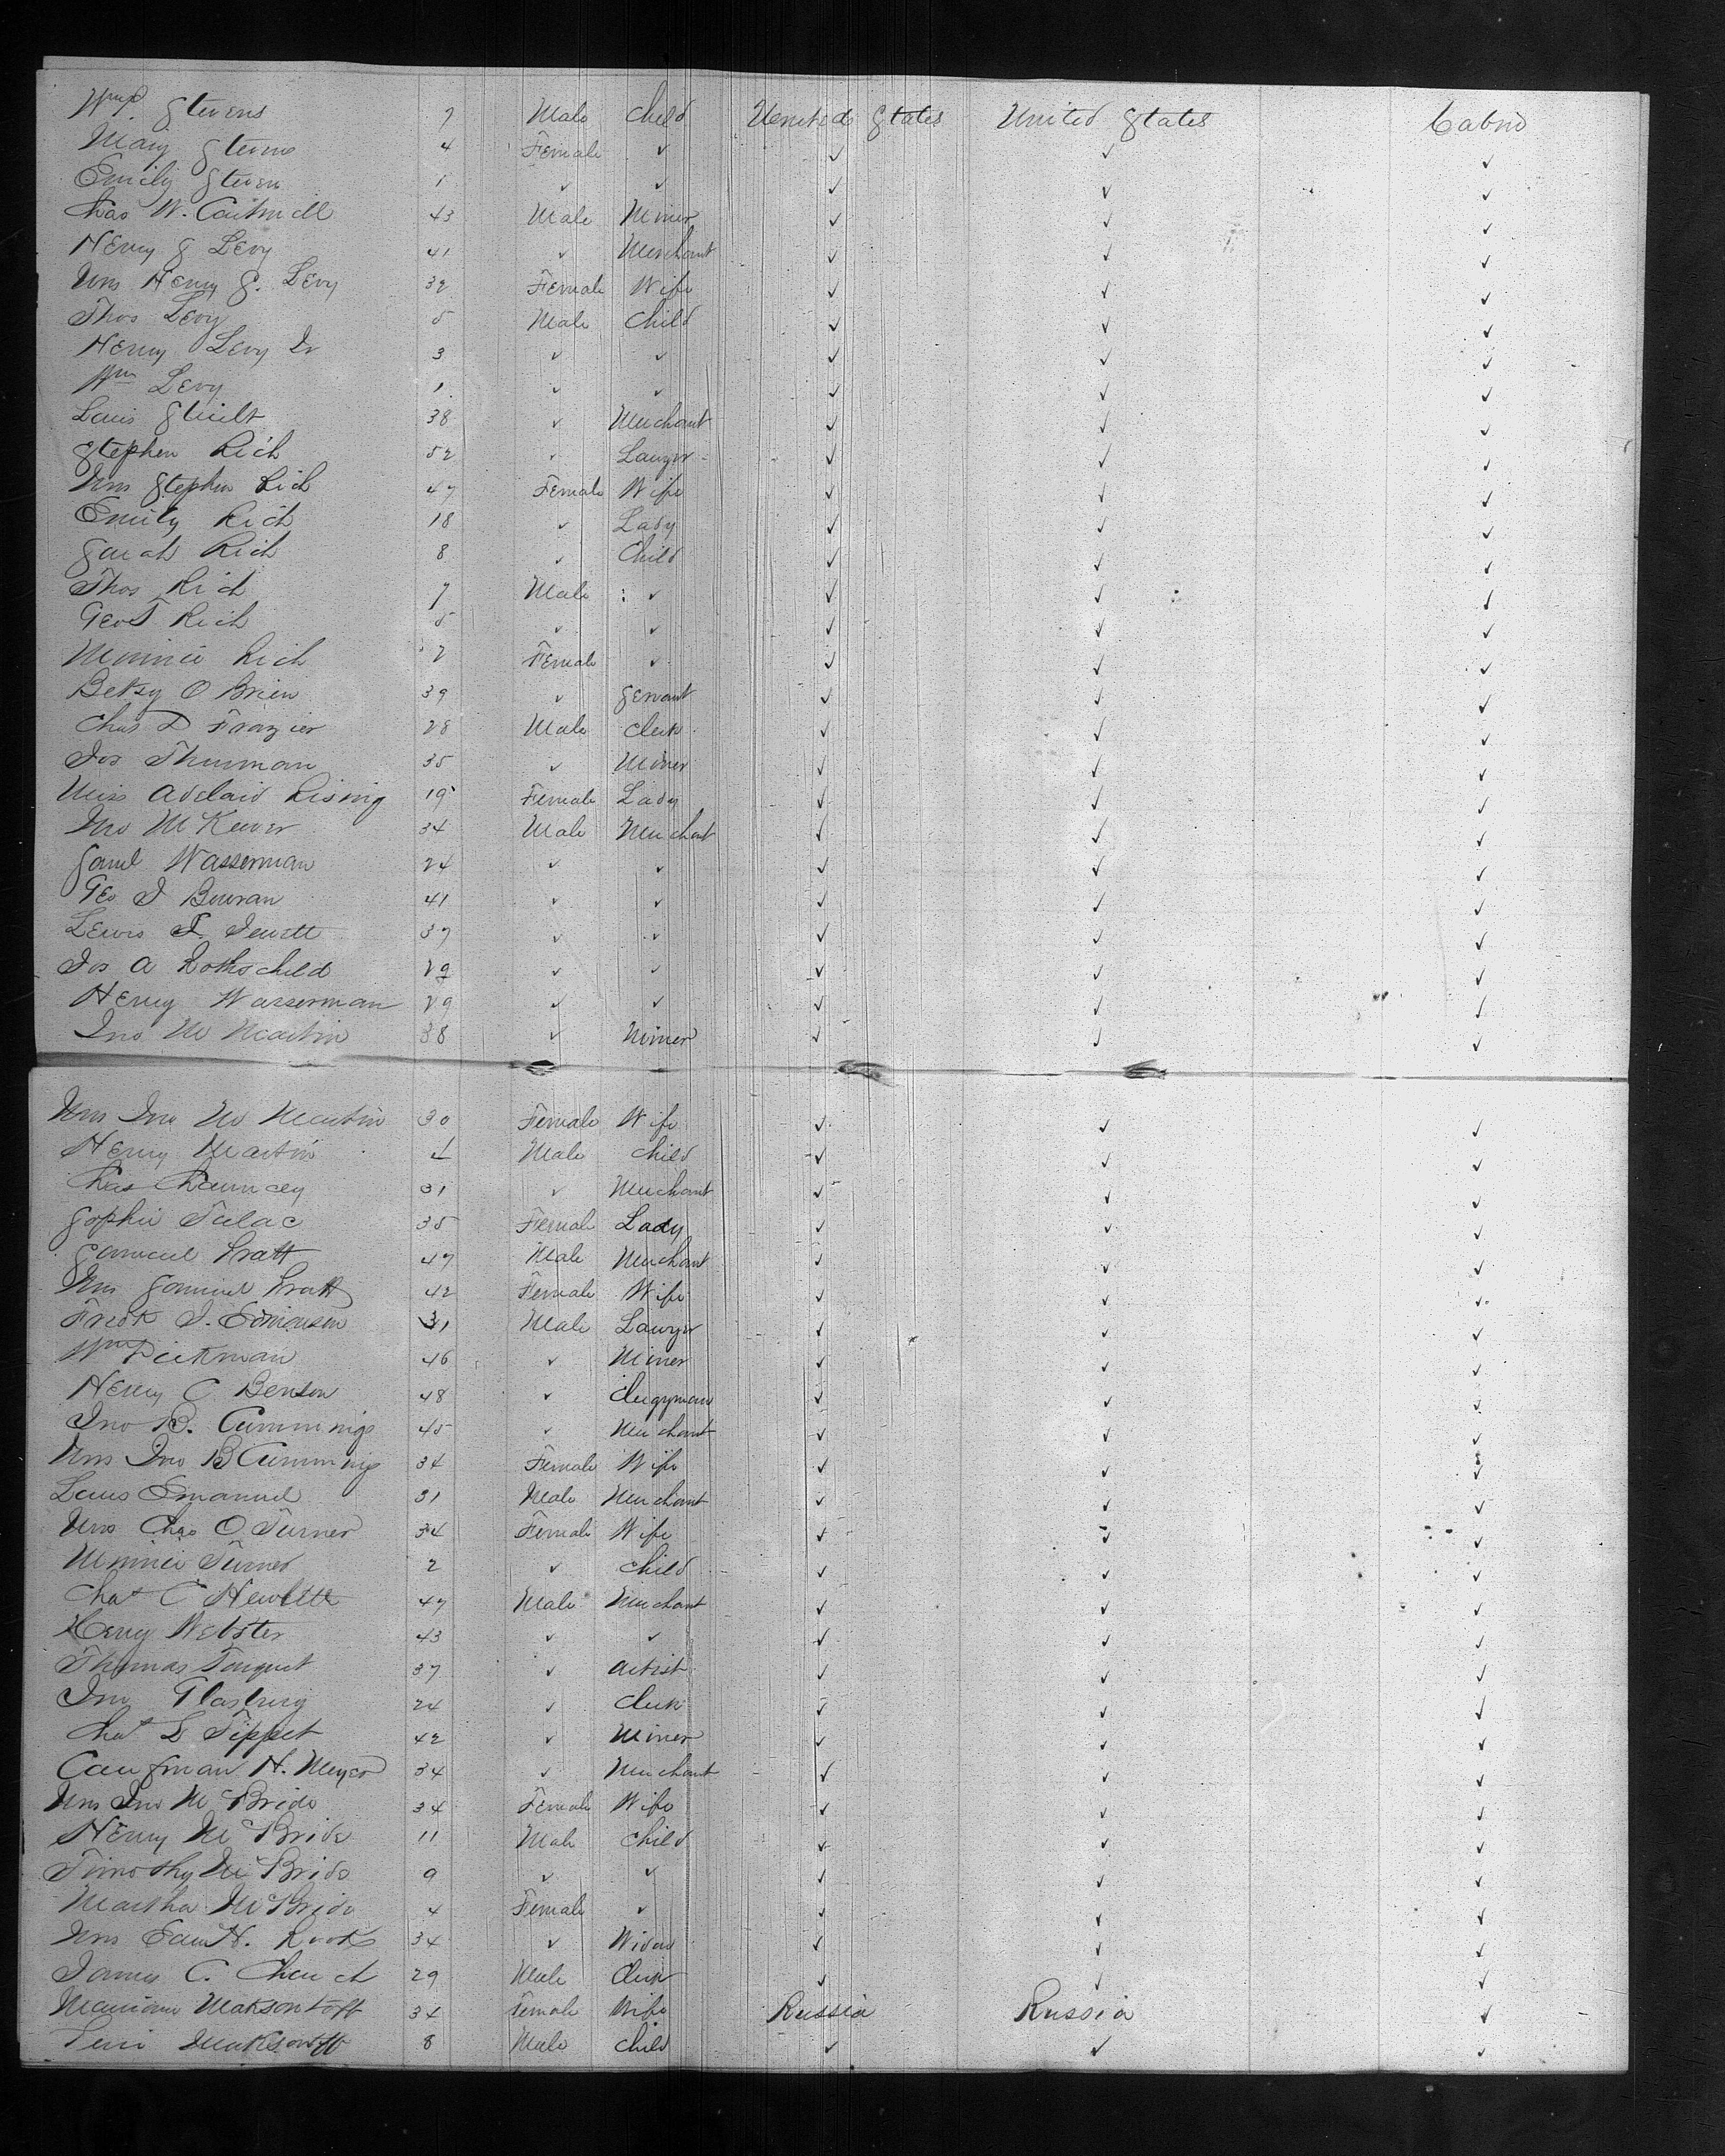 Wm P. Stevens 7 Male Child United States United States Cabin
Mary Stevens 4 Female ✓ ✓ ✓ ✓
Emily Steven 1 ✓ ✓ ✓ ✓ ✓
Chas W. 43 Male Miner ✓ ✓ ✓
Henry S Levy 41 ✓ Merchant ✓ ✓ ✓
Mrs Henry S. Levy 32 Female Wife ✓ ✓ ✓
Thos Levy 5 Male Child ✓ ✓ ✓
Henry Levy Jr 3 ✓ ✓ ✓ ✓ ✓
Wm Levy 1 ✓ ✓ ✓ ✓ ✓
Louis 38 ✓ Merchant ✓ ✓ ✓
Stephen Rich 52 ✓ Lawyer ✓ ✓ ✓
Mrs Stephen Rich 47 Female Wife ✓ ✓ ✓
Emily Rich 18 ✓ Lady ✓ ✓ ✓
Sarah Rich 8 ✓ Child ✓ ✓ ✓
Thos Rich 7 Male ✓ ✓ ✓ ✓
Geo T Rich 5 ✓ ✓ ✓ ✓ ✓
Minnie Rich 2 Female ✓ ✓ ✓ ✓
Betsy O Brien 39 ✓ Servant ✓ ✓ ✓
Chas D Frazier 28 Male Clerk ✓ ✓ ✓
Jos Thurman 35 ✓ Miner ✓ ✓ ✓
Miss Adelaid Rising 19 Female Lady ✓ ✓ ✓
Jno McKeever 34 Male Merchant ✓ ✓ ✓
Saml Wasserman 24 ✓ ✓ ✓ ✓ ✓
Geo J Bowran 41 ✓ ✓ ✓ ✓ ✓
Lewis T. Jewett 37 ✓ ✓ ✓ ✓ ✓
Jos A Rothschild 29 ✓ ✓ ✓ ✓ ✓
Henry Wasserman 29 ✓ ✓ ✓ ✓ ✓
Jno M Martin 38 ✓ Miner ✓ ✓ ✓
Mrs Jno M Martin 30 Female Wife ✓ ✓ ✓
Henry Martin 1 Male Child ✓ ✓ ✓
Chas Chauncey 31 ✓ Merchant ✓ ✓ ✓
Sophie Tulac 35 Female Lady ✓ ✓ ✓
Samuel Pratt 47 Male Merchant ✓ ✓ ✓
Mrs Samuel Pratt 42 Female Wife ✓ ✓ ✓
Fredk J. 31 Male Lawyer ✓ ✓ ✓
Wm Pickman 46 ✓ Miner ✓ ✓ ✓
Henry C. Benson 48 ✓ Clergyman ✓ ✓ ✓
Jno B. Cummings 45 ✓ Merchant ✓ ✓ ✓
Mrs Jno B Cummings 34 Female Wife ✓ ✓ ✓
Louis Emanuel 31 Male Merchant ✓ ✓ ✓
Mrs Chas O. Turner 34 Female Wife ✓ ✓ ✓
Minnie Turner 2 ✓ Child ✓ ✓ ✓
Chas C Hewlett 47 Male Merchant ✓ ✓ ✓
Henry Webster 43 ✓ ✓ ✓ ✓ ✓
Thomas 37 ✓ Artist ✓ ✓ ✓
Jno Glasburg 24 ✓ Clerk ✓ ✓ ✓
Chas L Tippet 42 ✓ Miner ✓ ✓ ✓
Caufman H. Meyer 34 ✓ Merchant ✓ ✓ ✓
Mrs Jno McBride 34 Female Wife ✓ ✓ ✓
Henry McBride 11 Male Child ✓ ✓ ✓
Timothy McBride 9 ✓ ✓ ✓ ✓ ✓
Martha McBride 4 Female ✓ ✓ ✓ ✓
Mrs Sam H. 34 ✓ Widow ✓ ✓ ✓
James C. Church 29 Male Clerk ✓ ✓ ✓
Maksontoff 34 Female Wife Russia Russia ✓
8 Male Child ✓ ✓ ✓